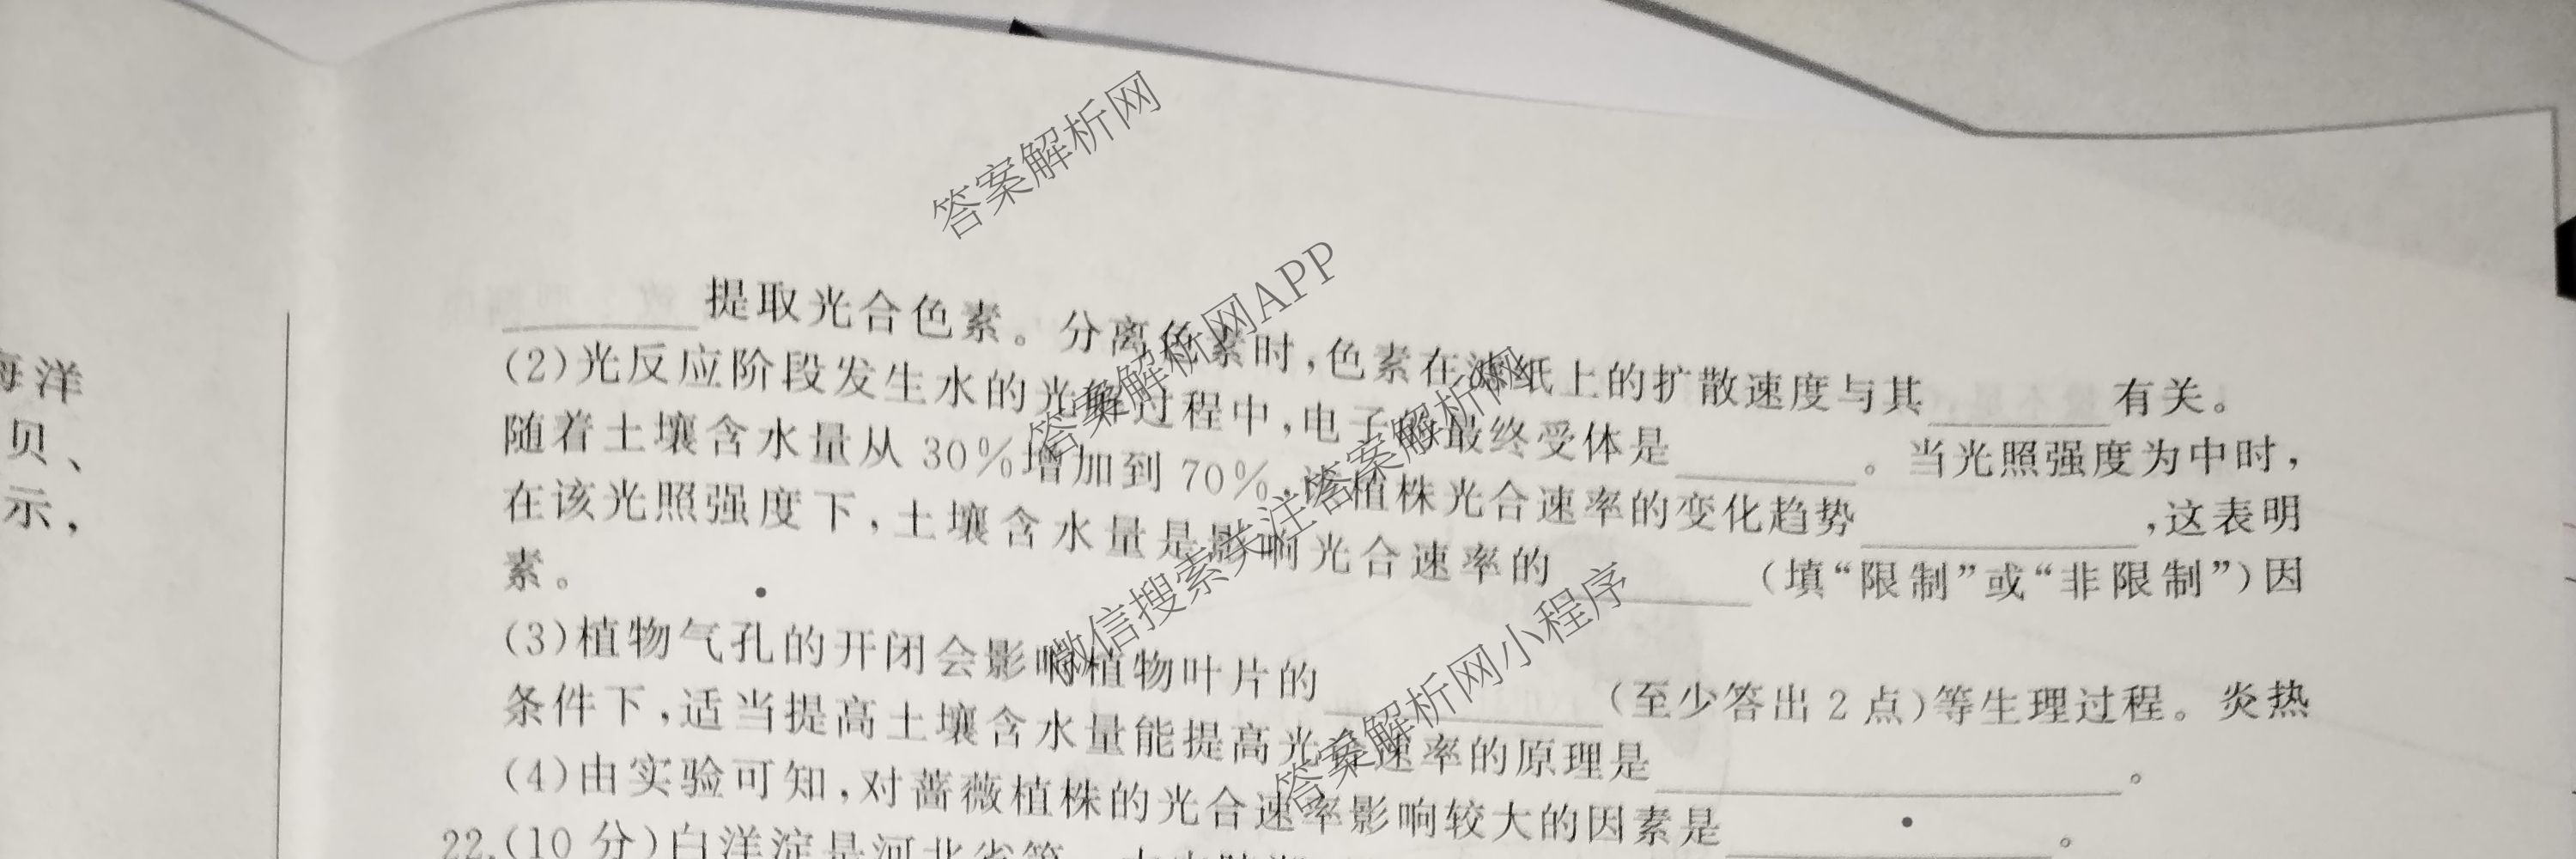 海洋
贝、
示，
________提取光合色素。分离色素时，色素在滤纸上的扩散速度与其________有关。
(2)光反应阶段发生水的光解过程中，电子的最终受体是________。当光照强度为中时，
随着土壤含水量从30%增加到70%，该植株光合速率的变化趋势________，这表明
在该光照强度下，土壤含水量是影响光合速率的________(填“限制”或“非限制”)因
素。
(3)植物气孔的开闭会影响植物叶片的________(至少答出2点)等生理过程。炎热
条件下，适当提高土壤含水量能提高光合速率的原理是________。
(4)由实验可知，对蔷薇植株的光合速率影响较大的因素是________。
22.(10分)白洋淀是河北省第一大内陆湖
答案解析网
答案解析网APP
微信搜索关注答案解析网
答案解析网小程序